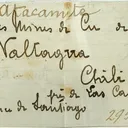 Atacamita
es Mines de Cu de
Vallagra
Chili
pr. de Las Ca
nce de Santiago
29